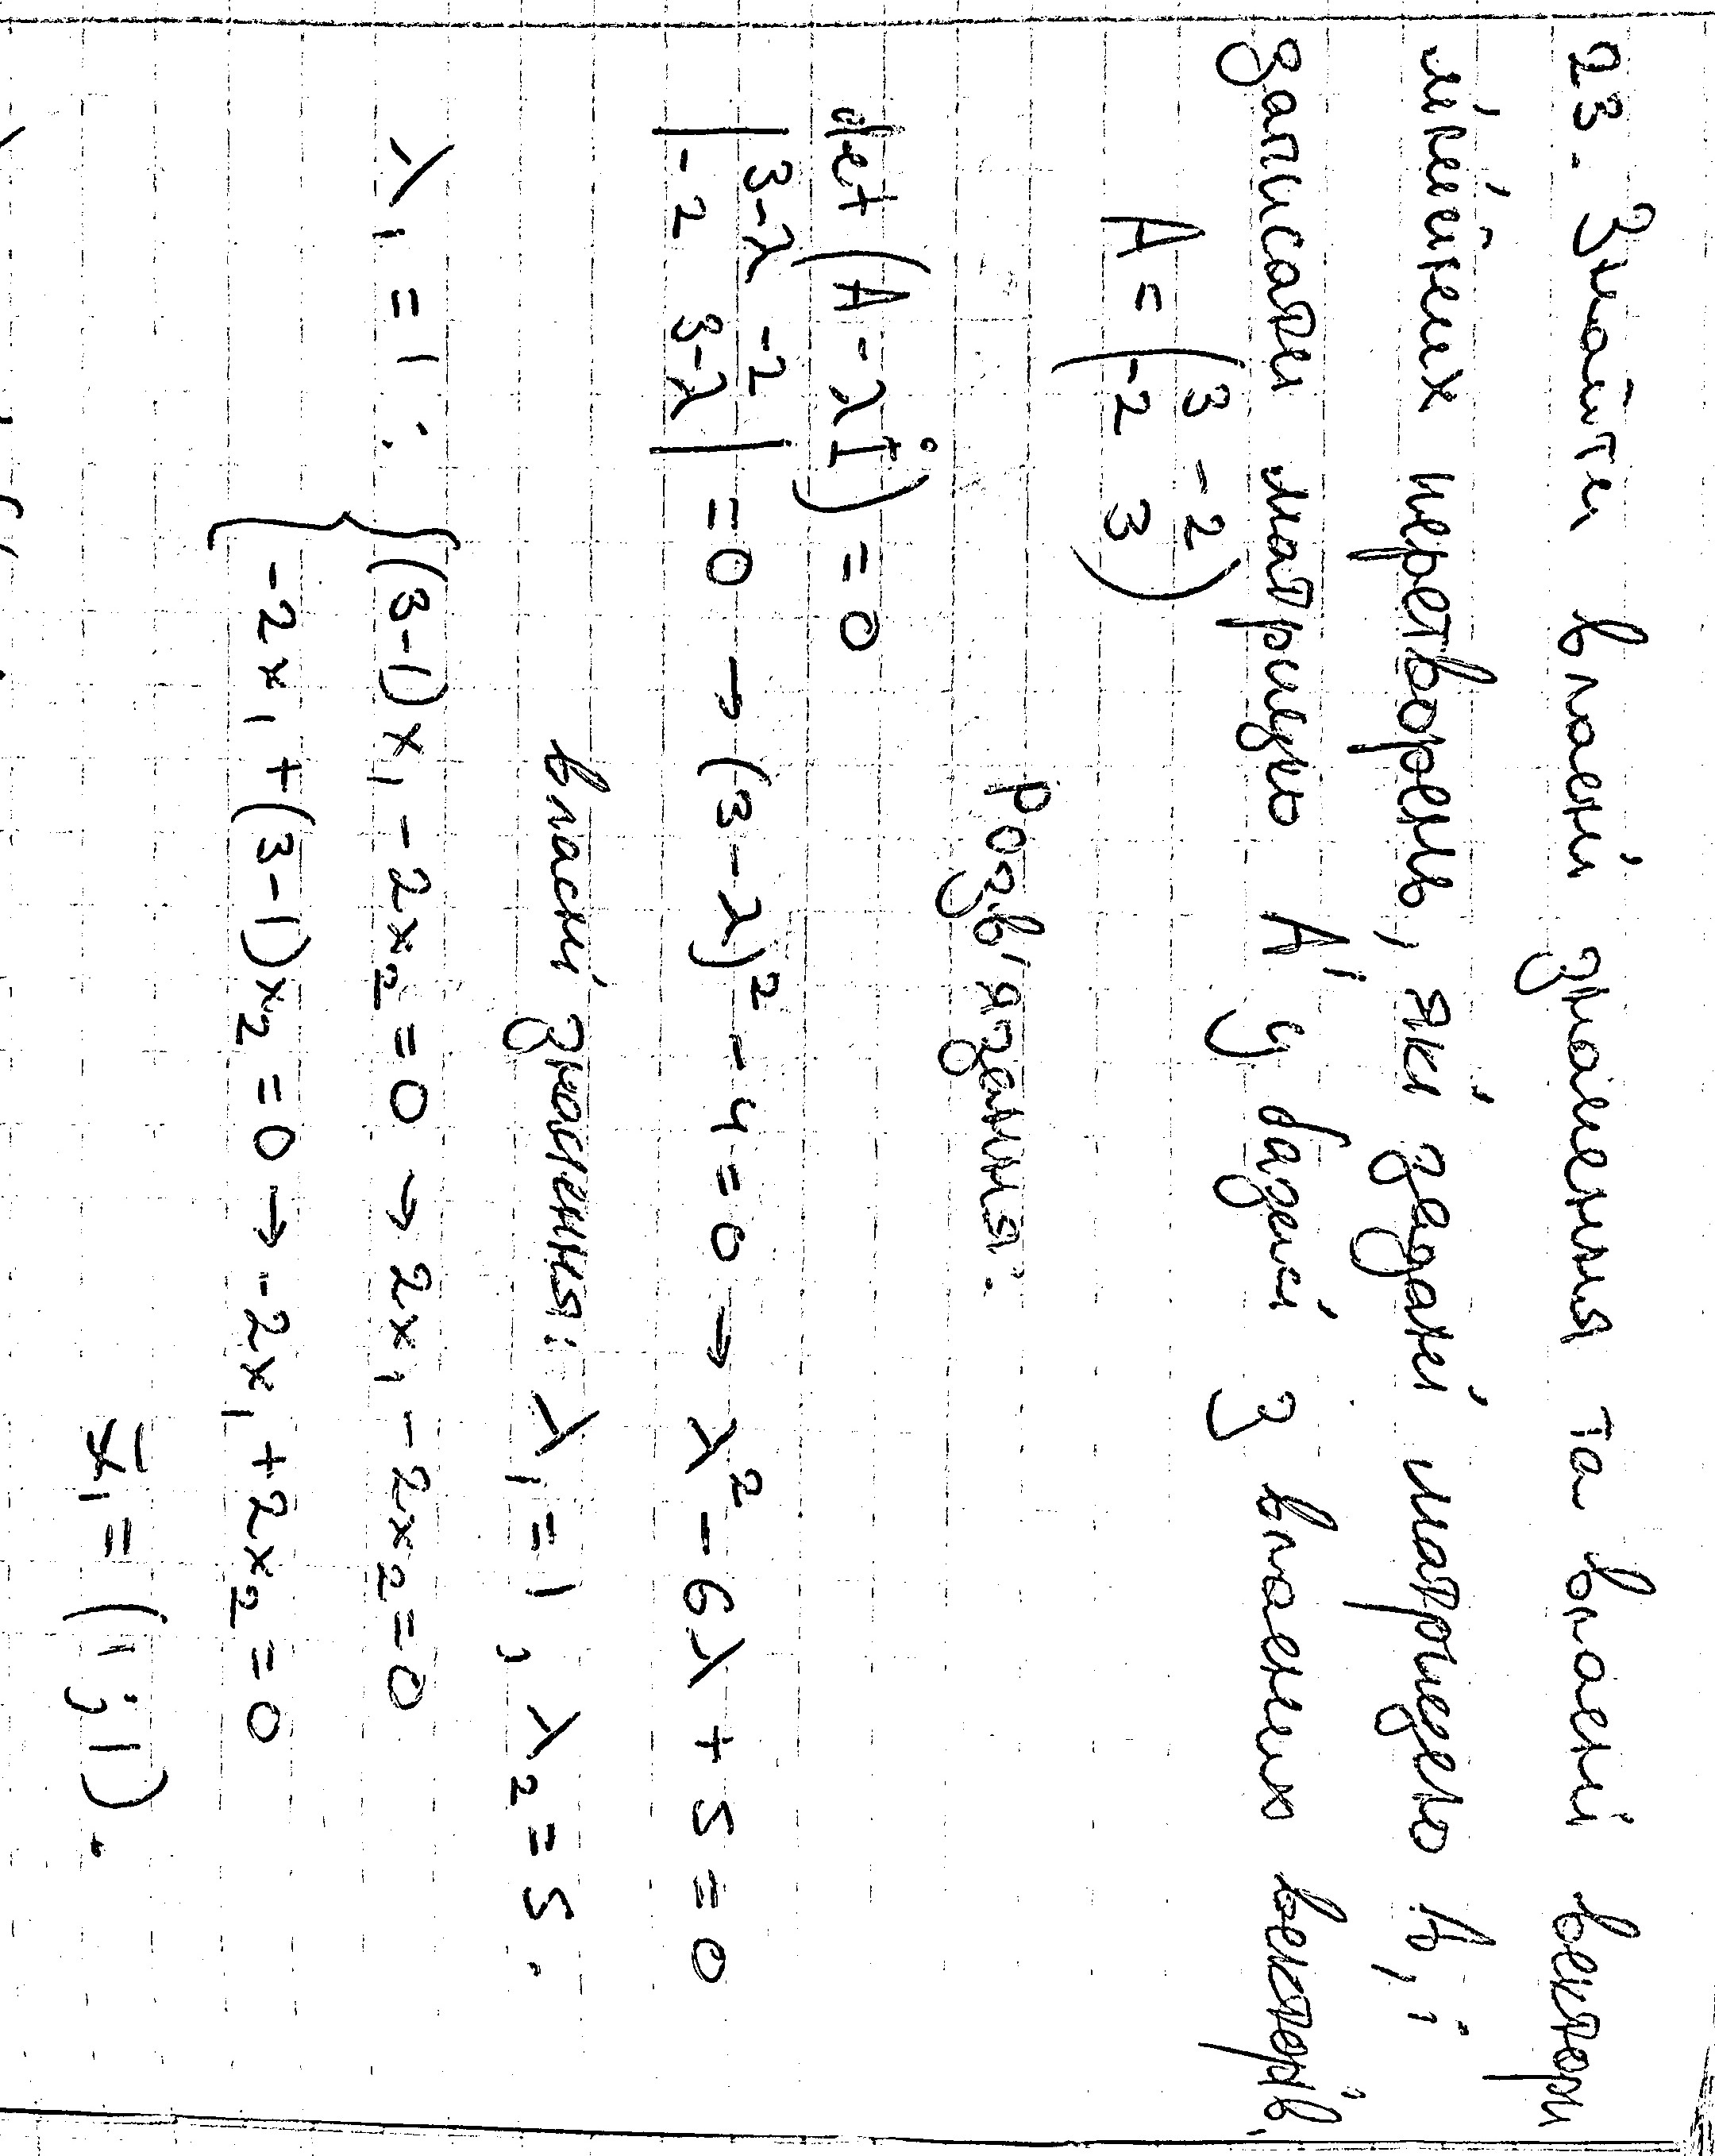 23. Знайти власні значення та власні вектори
лінійних перетворень, які задані матрицею A, і
записати матрицю A' у базисі з власних векторів.
A = (3 -2
-2 3)
Розв'язання.
det (A - λI) = 0
|3-λ -2
-2 3-λ| = 0 → (3-λ)² - 4 = 0 → λ² - 6λ + 5 = 0
власні значення: λ₁ = 1, λ₂ = 5.
λ₁ = 1: {(3-1)x₁ - 2x₂ = 0 → 2x₁ - 2x₂ = 0
-2x₁ + (3-1)x₂ = 0 → -2x₁ + 2x₂ = 0
x̄₁ = (1; 1).